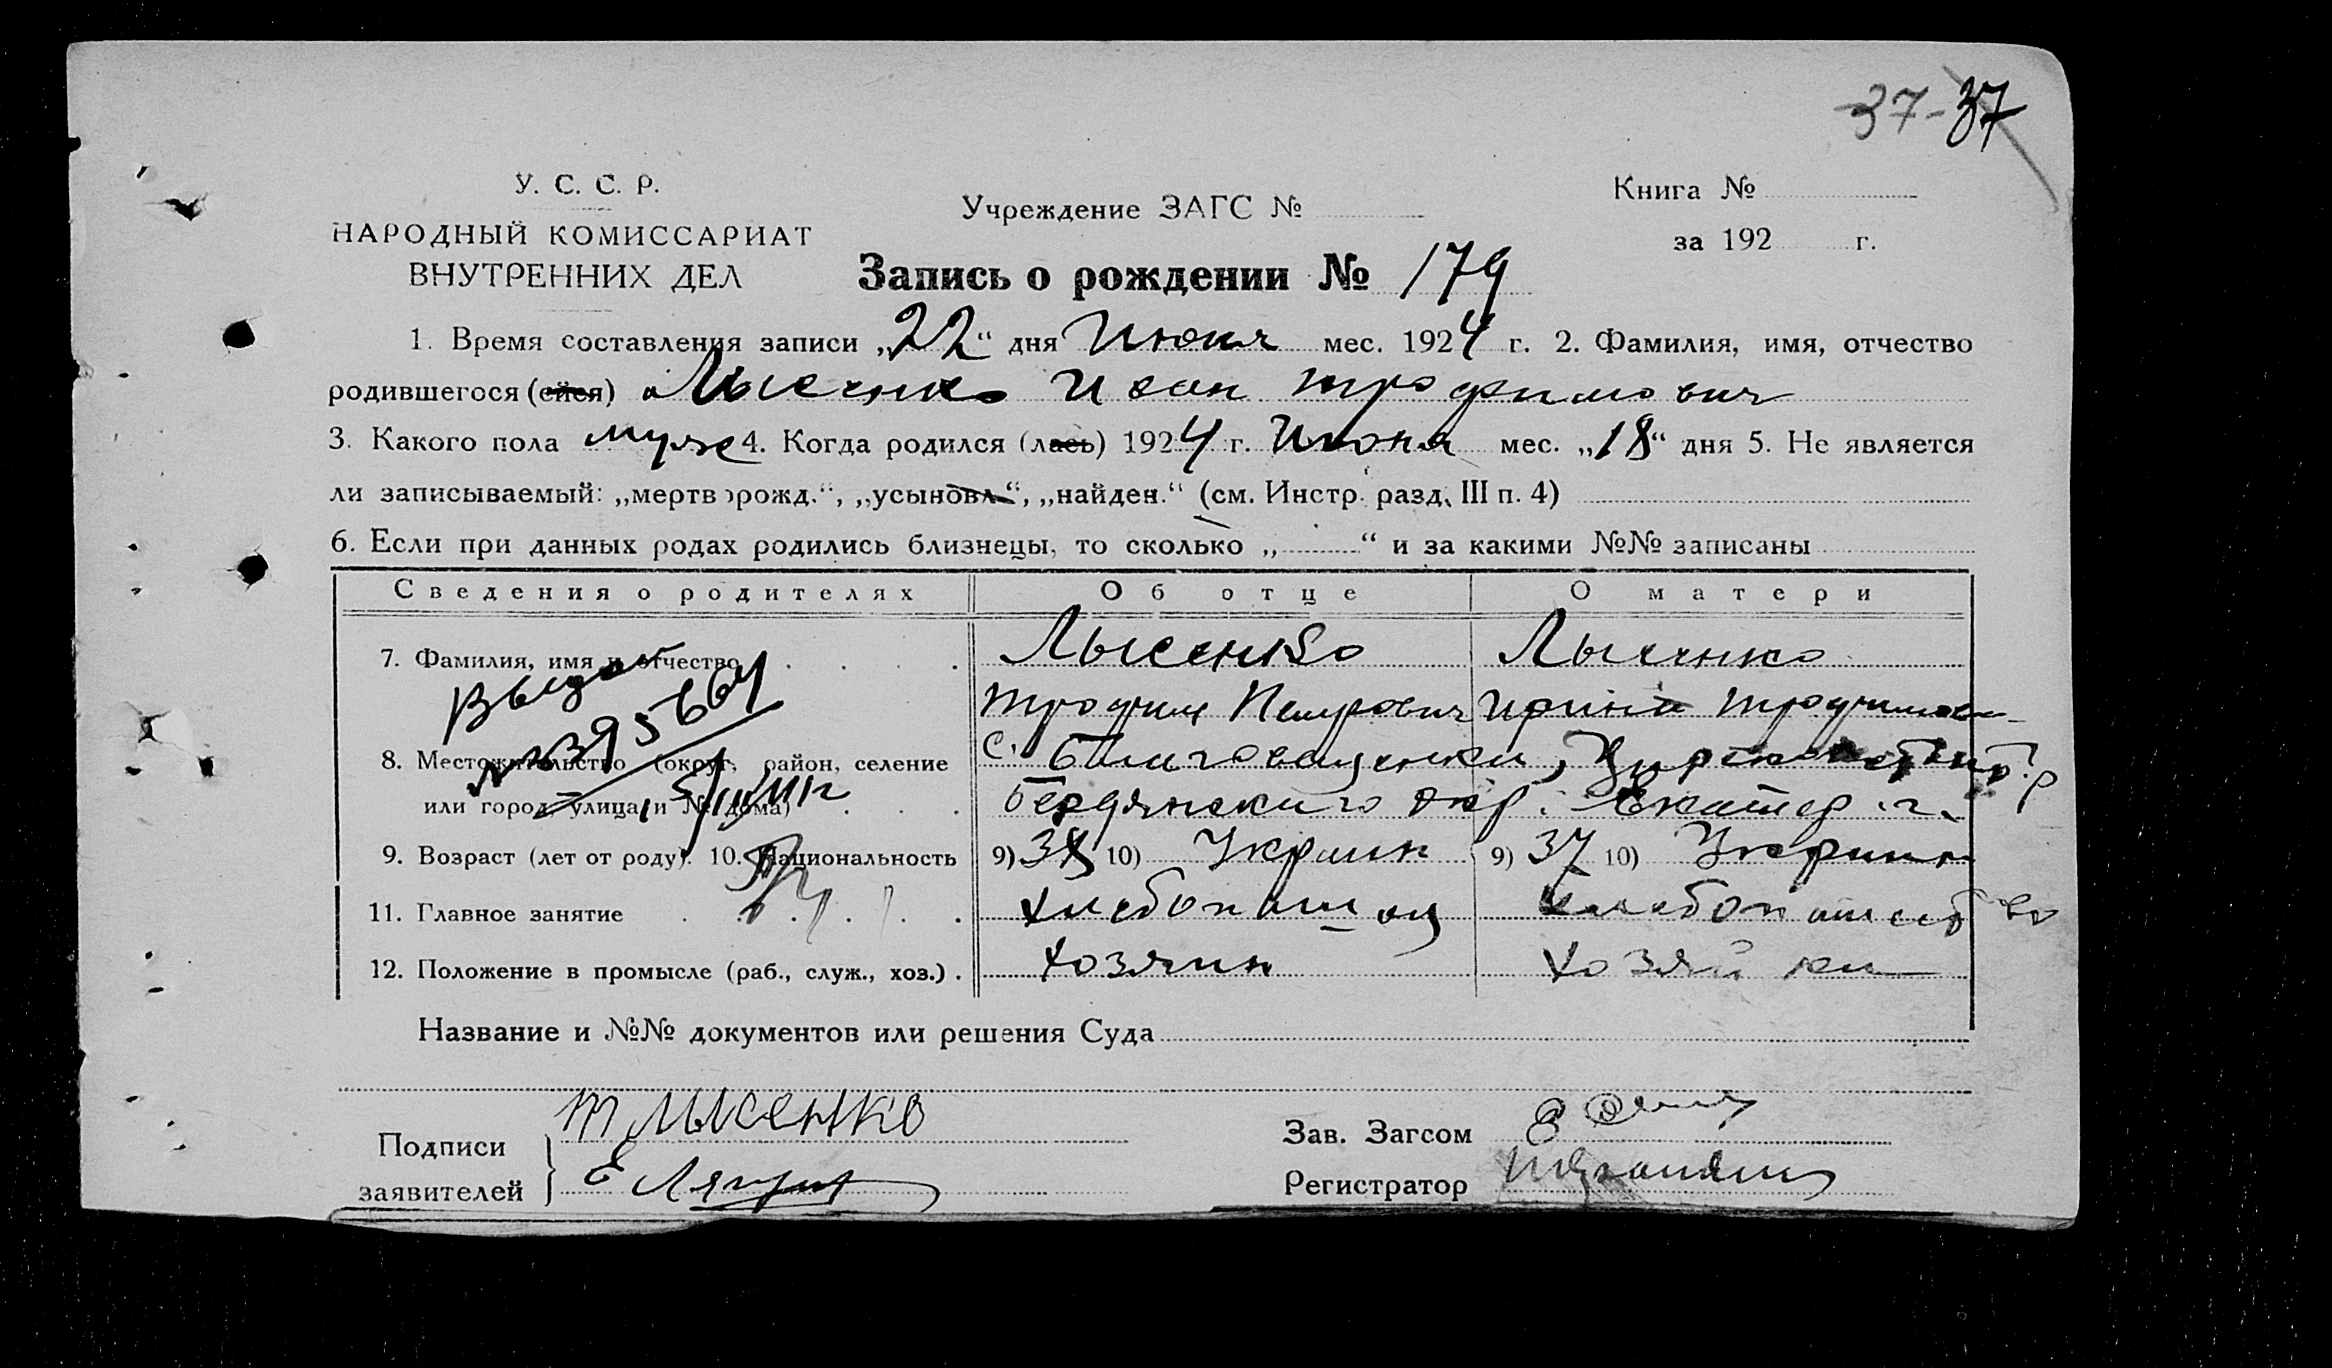 37-37
У. С. С. Р.
НАРОДНЫЙ КОМИССАРИАТ
ВНУТРЕННИХ ДЕЛ
Учреждение ЗАГС №
Книга №
за 192 г.
Запись о рождении № 179
1. Время составления записи „22“ дня Июня мес. 1924 г. 2. Фамилия, имя, отчество
родившегося (ейся) Лысенко Иван Трофимович
3. Какого пола муж 4. Когда родился (лась) 1924 г. Июня мес. „18“ дня 5. Не является
ли записываемый: „мертворожд.“, „усыновл.“, „найден.“ (см. Инстр. разд. III п. 4)
6. Если при данных родах родились близнецы, то сколько „ “ и за какими №№ записаны
Сведения о родителях Об отце О матери
7. Фамилия, имя и отчество Лысенко Лысенко
Трофим Петрович Ирина Трофимов
Выдат
№ 395664
8. Местожительство (округ, район, селение с. Благовещенка,
или город, улица и № дома) Бердянского окр. Екатер. г.
9. Возраст (лет от роду). 10. Национальность 9) 38 10) Украин 9) 37 10) Украин
11. Главное занятие хлебопашец хлебопашество
12. Положение в промысле (раб., служ., хоз.) хозяин хозяйка
Название и №№ документов или решения Суда
Подписи
заявителей
Т Лысенко
Е
Зав. Загсом
Регистратор